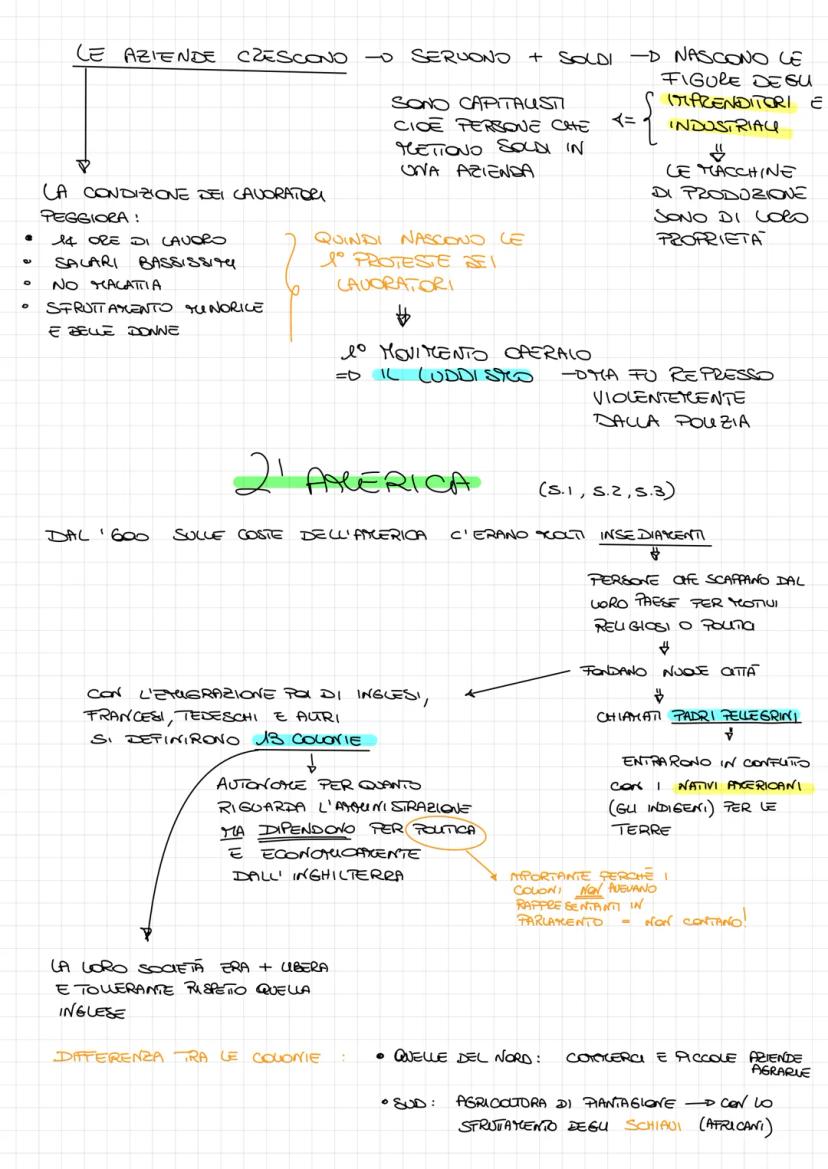 LE AZIENDE CRESCONO → SERVONO + SOLDI → NASCONO LE
FIGURE DEGLI
IMPRENDITORI E
INDUSTRIALI
SONO CAPITALISTI
CIOÈ PERSONE CHE
METTONO SOLDI IN
UNA AZIENDA
LE MACCHINE
DI PRODUZIONE
SONO DI LORO
PROPRIETÀ
LA CONDIZIONE DEI LAVORATORI
PEGGIORA:
• 14 ORE DI LAVORO
• SALARI BASSISSIMI
• NO MALATTIA
• SFRUTTAMENTO MINORILE
E DELLE DONNE
QUINDI NASCONO LE
1° PROTESTE DEI
LAVORATORI
1° MOVIMENTO OPERAIO
⇒ IL LUDDISMO → MA FU REPRESSO
VIOLENTEMENTE
DALLA POLIZIA
L'AMERICA (S.1, S.2, S.3)
DAL '600 SULLE COSTE DELL'AMERICA C'ERANO MOLTI INSEDIAMENTI
PERSONE CHE SCAPPANO DAL
LORO PAESE PER MOTIVI
RELIGIOSI O POLITICI
FONDANO NUOVE CITTÀ
CHIAMATI PADRI PELLEGRINI
ENTRARONO IN CONFLITTO
CON I NATIVI AMERICANI
(GLI INDIGENI) PER LE
TERRE
CON L'EMIGRAZIONE POI DI INGLESI,
FRANCESI, TEDESCHI E ALTRI
SI DEFINIRONO 13 COLONIE
AUTONOME PER QUANTO
RIGUARDA L'AMMINISTRAZIONE
MA DIPENDONO PER POLITICA
E ECONOMICAMENTE
DALL'INGHILTERRA
IMPORTANTE PERCHÈ I
COLONI NON AVEVANO
RAPPRESENTANTI IN
PARLAMENTO = NON CONTANO!
LA LORO SOCIETÀ ERA + LIBERA
E TOLLERANTE RISPETTO QUELLA
INGLESE
DIFFERENZA TRA LE COLONIE : • QUELLE DEL NORD: COMMERCI E PICCOLE AZIENDE
AGRARIE
• SUD: AGRICOLTURA DI PIANTAGIONE → CON LO
SFRUTTAMENTO DEGLI SCHIAVI (AFRICANI)